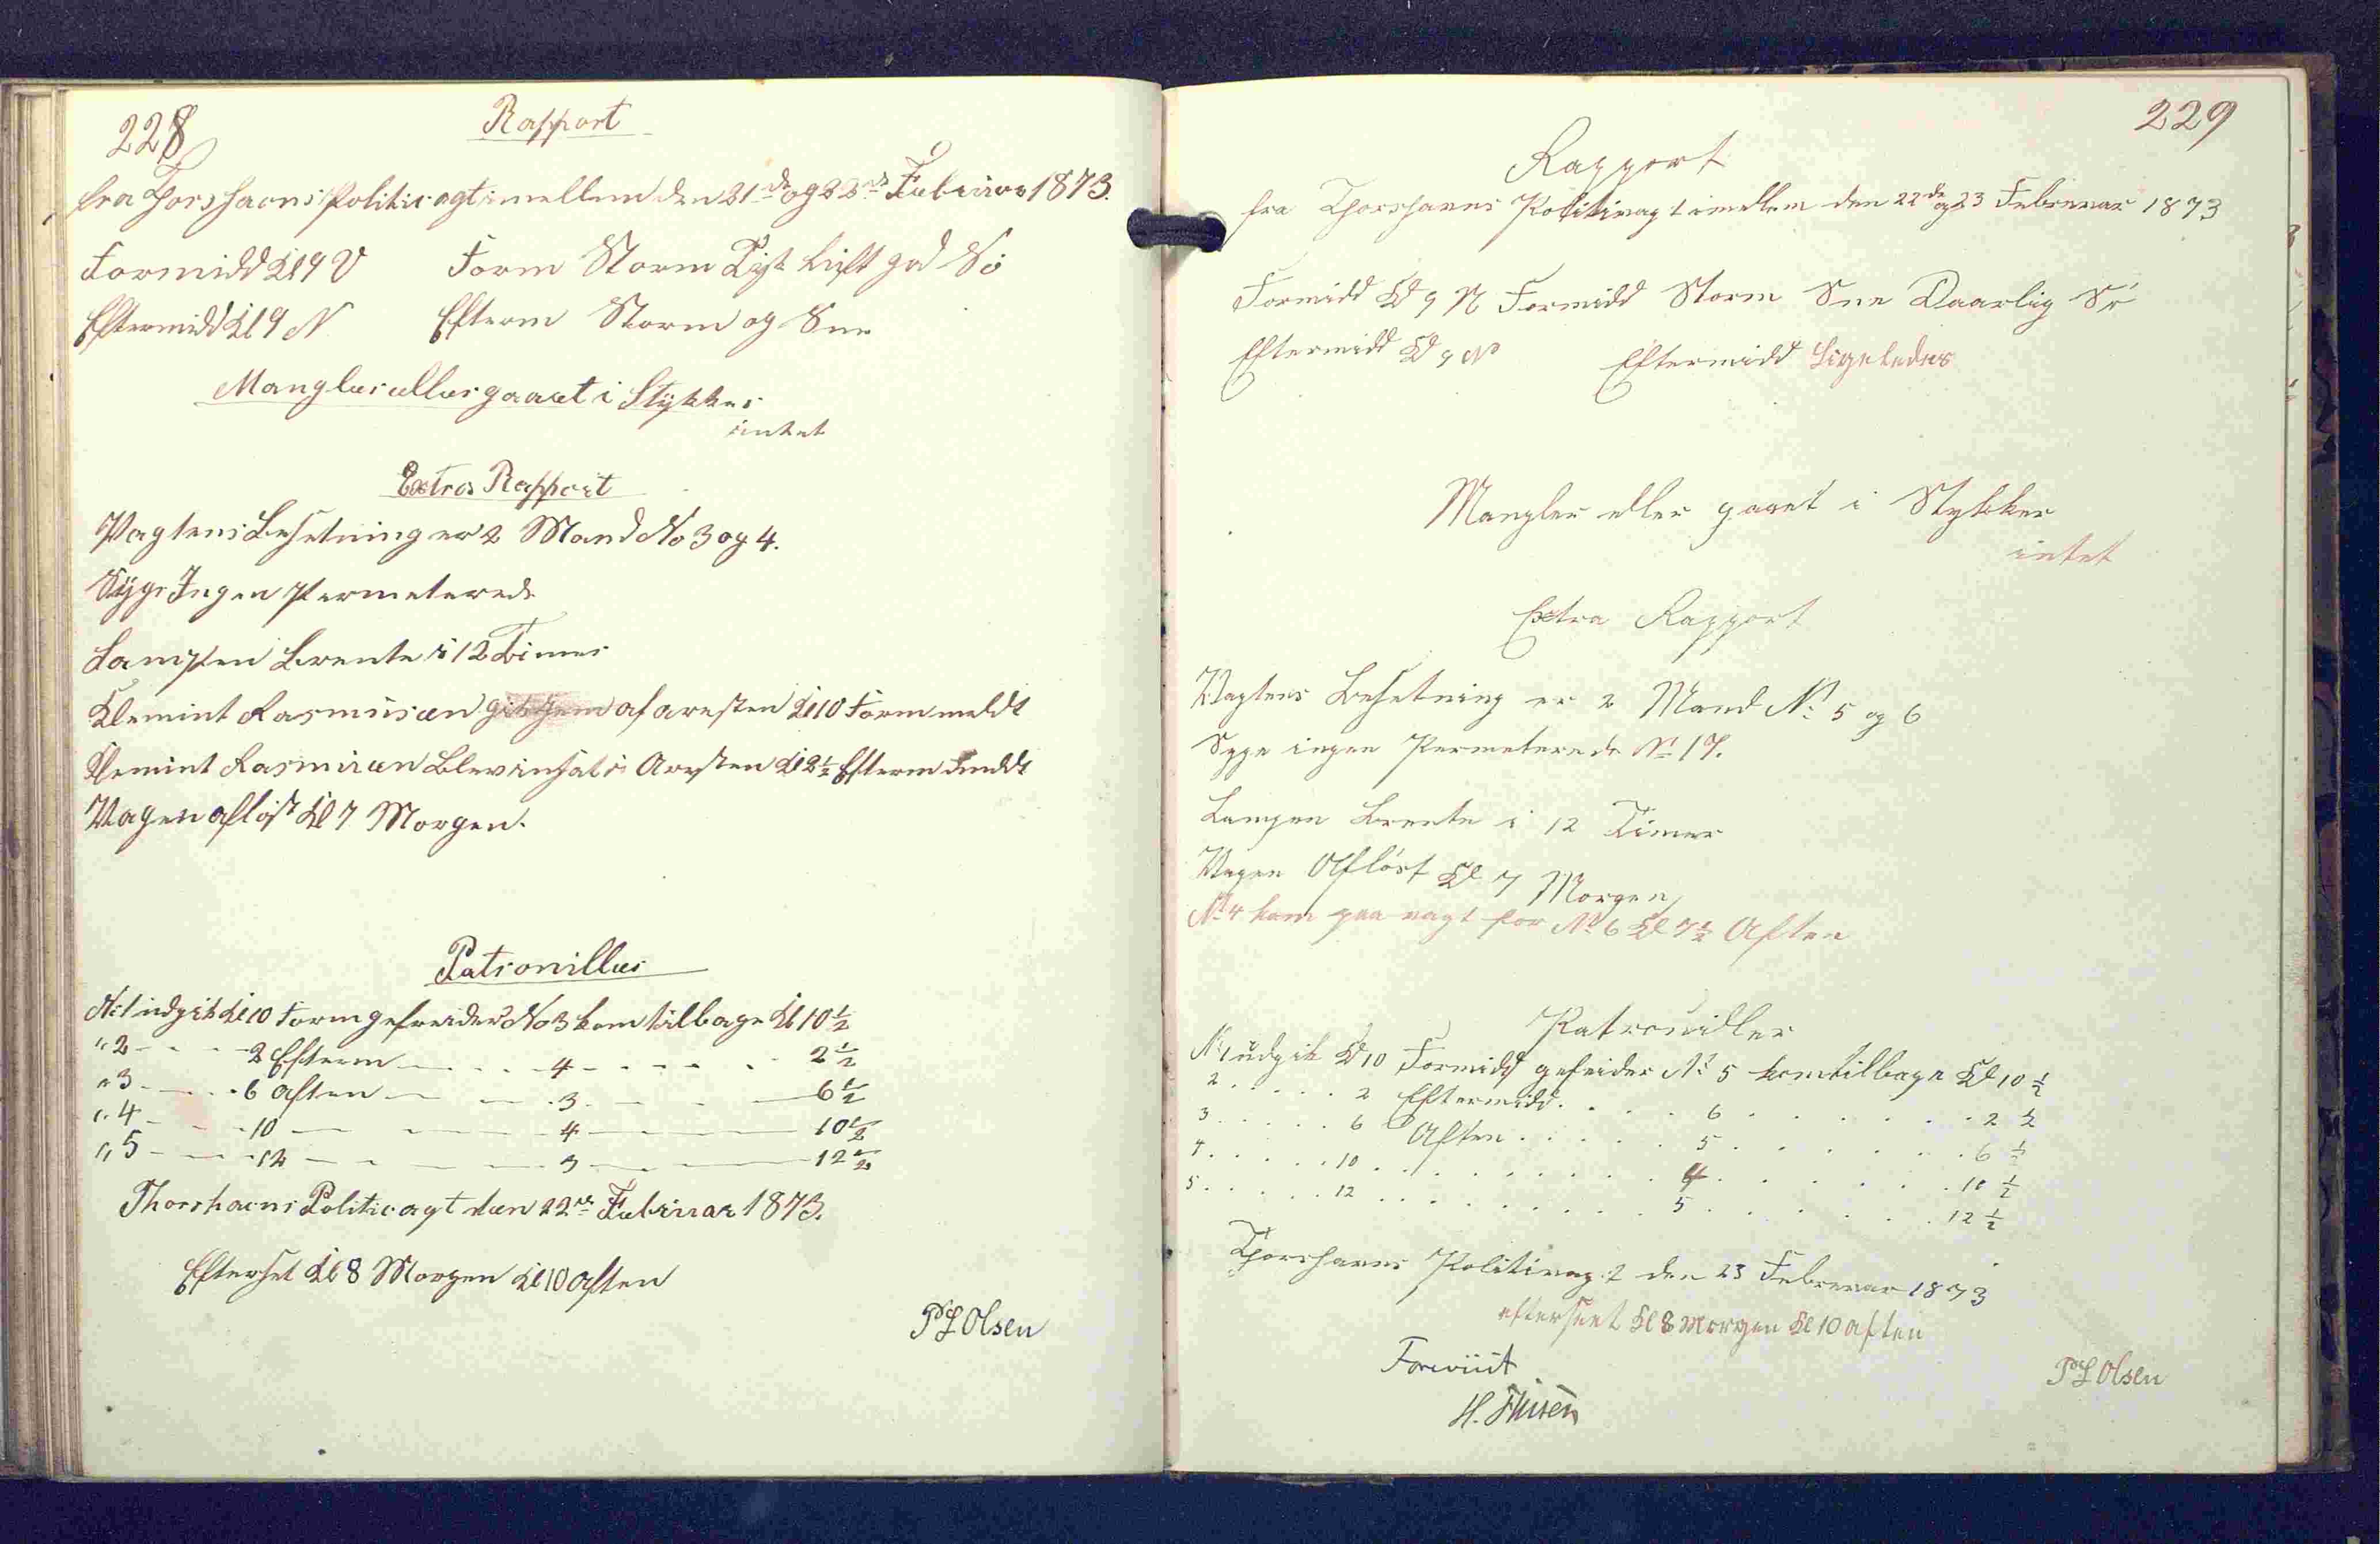 228
Rapport
fra Thorshavns Politivagt imellem den 21de og 22de Februar 1873.
Formidd Kl 9 V Form Storm Tyk Luft god Sö
Eftermidd Kl 9 N Efterm Storm og Sne
Mangler eller gaaet i Stykker
intet
Extra Rapport
Vagtens Besetning er 2 Mand No 3 og 4.
Syge Ingen Permeterede
Lampen Brente i 12 Timer
Klemint Rasmusen gik hjem af aresten Kl 10 Form meldt
Klemint Rasmusen Blev insat i Aresten Kl 2½ Efterm
Vagen aflöst Kl 7 Morgen.
Patroniller
No 1 udgik Kl 10 Form gefreider No 3 kom tilbage Kl 10½
" 2 - - - 2 Efterm - - - 4 - - - - 2½
" 3 - - - 6 Aften - - - 3 - - - 6½
" 4 - - - 10 - - - 4 - - - 10½
" 5 - - - 12 - - - 3 - - - 12½
Thorshavns Politivagt den 22de Februar 1873.
Efterset Kl 8 Morgen Kl 10 Aften
P L Olsen
229
Rapport
fra Thorshavns Politivagt imellem den 22de og 23 Februar 1873
Formidd Kl 9 N Formidd Storm Sne Daarlig Sö
Eftermidd Kl 9 No Eftermidd Ligeledes
Mangler eller gaaet i Stykker
intet
Extra Rapport
Vagtens Besetning er 2 Mand No 5 og 6
Syge ingen Permeterede No 17.
Lampen Brente i 12 Timer
Vagen Aflöst Kl 7 Morgen
No 4 kom paa vagt for No 6 Kl 7½ Aften
Patrouiller
No 1 udgik Kl 10 Formidd gefreider No 5 kom tilbage Kl 10½
2 . . . . . 2 Eftermidd . . . . 6 . . . . . . 2½
3 . . . . . 6 Aften . . . . . 5 . . . . . . 6½
4 . . . . . 10 . . . . . . . . 4 . . . . . . 10½
5 . . . . . 12 . . . . . . . . 5 . . . . . . 12½
Thorshavns Politivagt den 23 Februar 1873
efterseet Kl 8 Morgen Kl 10 aften
P L Olsen
Foreviist